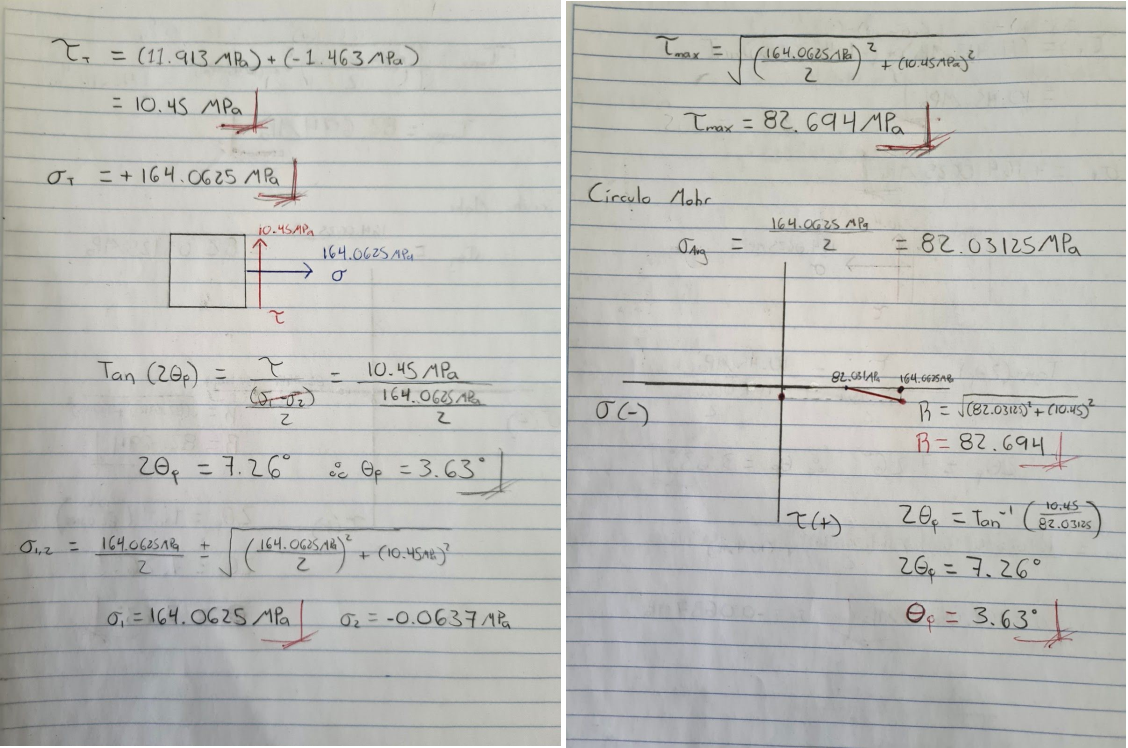 τ_T = (11.913 MPa) + (-1.463 MPa)
= 10.45 MPa
σ_T = +164.0625 MPa
10.45MPa
164.0625 MPa
σ
τ
Tan (2θp) = τ / ((σ1-σ2)/2) = 10.45 MPa / (164.0625 MPa/2)
2θp = 7.26° ∴ θp = 3.63°
σ1,2 = 164.0625MPa/2 ± √((164.0625MPa/2)² + (10.45MPa)²)
σ1 = 164.0625 MPa σ2 = -0.0637 MPa
τmax = √((164.0625MPa/2)² + (10.45MPa)²)
τmax = 82.694 MPa
Circulo Mohr
σAvg = 164.0625 MPa/2 = 82.03125 MPa
82.031MPa 164.0625MPa
σ(-)
R = √((82.03125)² + (10.45)²)
R = 82.694
τ(+)
2θp = Tan⁻¹ (10.45/82.03125)
2θp = 7.26°
θp = 3.63°